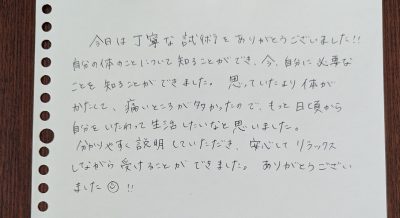 今日は丁寧な試術をありがとうございました!!
自分の体のことについて知ることができ、今、自分に必要な
ことを知ることができました。思っていたより体が
かたくて、痛いところが多かったので、もっと日頃から
自分をいたわって生活したいなと思いました。
分かりやすく説明していただき、安心してリラックス
しながら受けることができました。ありがとうござい
ました☺!!